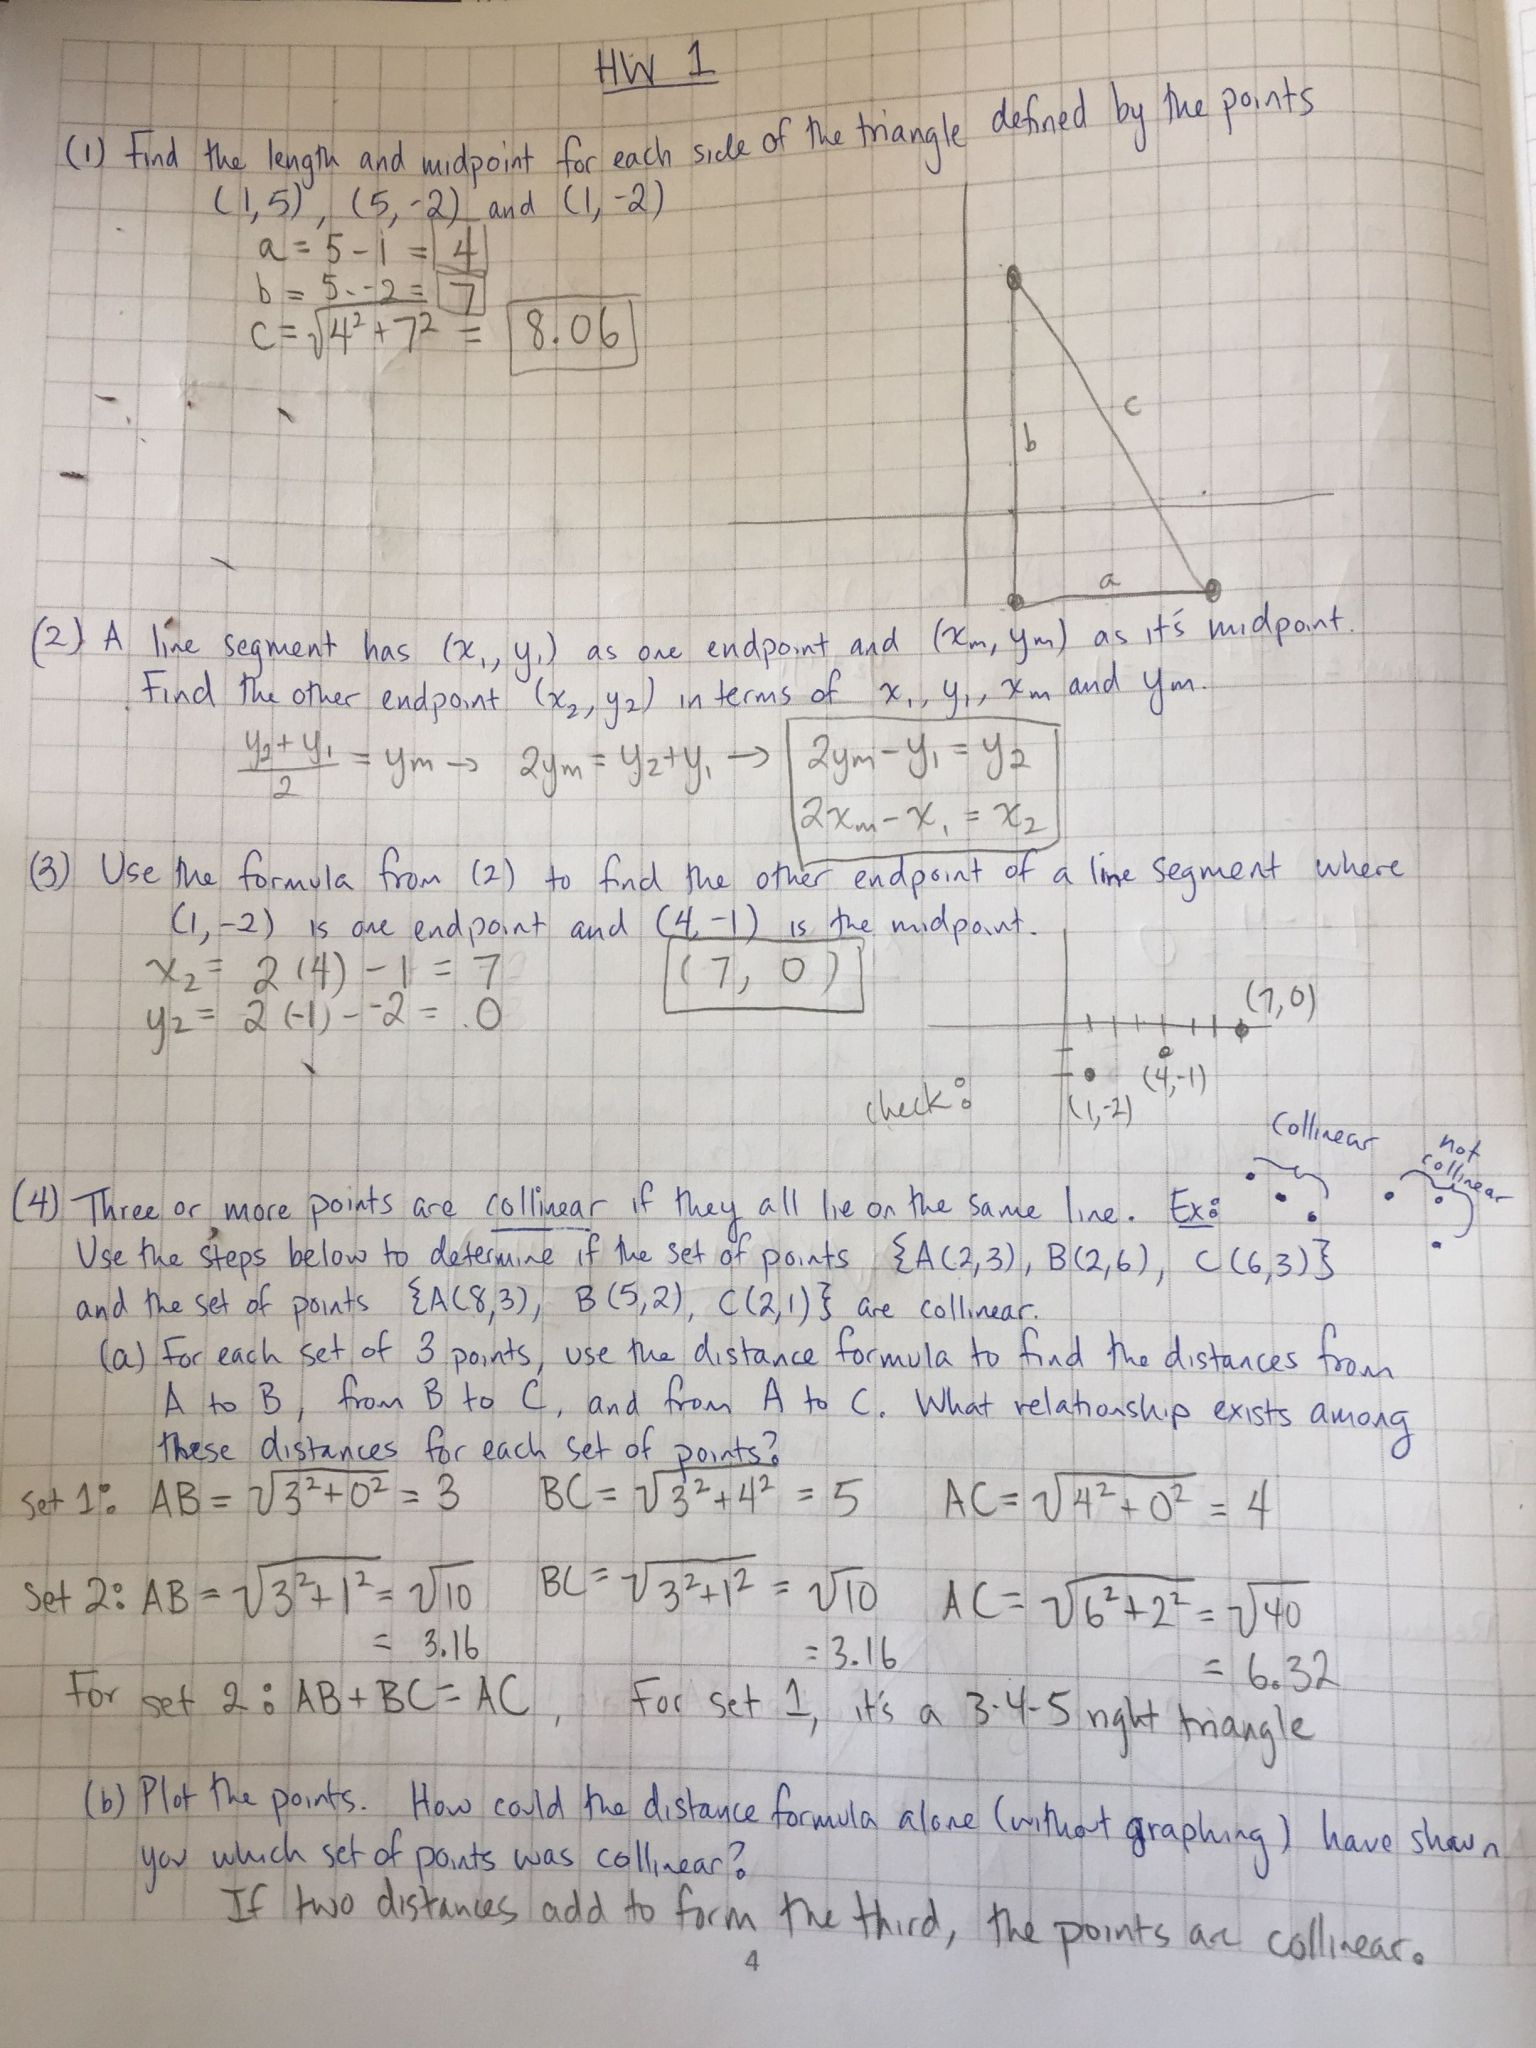 HW 1
(1) Find the length and midpoint for each side of the triangle defined by the points
(1,5), (5,-2) and (1,-2)
a = 5 - 1 = 4
b = 5 - -2 = 7
c = √4² + 7² = 8.06
c
b
a
(2) A line segment has (x₁, y₁) as one endpoint and (xm, ym) as it's midpoint.
Find the other endpoint (x₂, y₂) in terms of x₁, y₁, xm and ym.
y₂ + y₁ / 2 = ym → 2ym = y₂ + y₁ → 2ym - y₁ = y₂
2xm - x₁ = x₂
(3) Use the formula from (2) to find the other endpoint of a line segment where
(1,-2) is one endpoint and (4,-1) is the midpoint.
x₂ = 2(4) - 1 = 7 (7, 0)
y₂ = 2(-1) - -2 = 0
(7,0)
check: (4,-1)
(1,-2)
Collinear not collinear
(4) Three or more points are collinear if they all lie on the same line. Ex:
Use the steps below to determine if the set of points {A(2,3), B(2,6), C(6,3)}
and the set of points {A(8,3), B(5,2), C(2,1)} are collinear.
(a) For each set of 3 points, use the distance formula to find the distances from
A to B, from B to C, and from A to C. What relationship exists among
these distances for each set of points?
Set 1: AB = √3² + 0² = 3 BC = √3² + 4² = 5 AC = √4² + 0² = 4
Set 2: AB = √3² + 1² = √10 BC = √3² + 1² = √10 AC = √6² + 2² = √40
= 3.16 = 3.16 = 6.32
For set 2: AB + BC = AC, For set 1, it's a 3-4-5 right triangle
(b) Plot the points. How could the distance formula alone (without graphing) have shown
you which set of points was collinear?
If two distances add to form the third, the points are collinear.
4